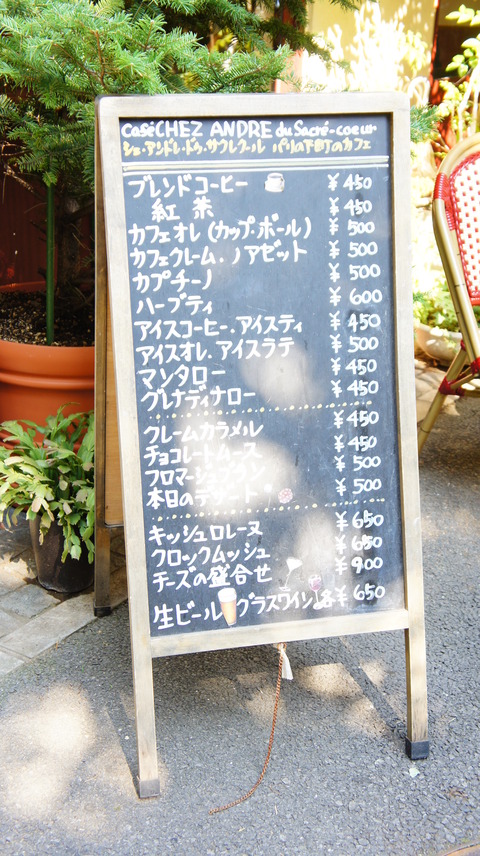 CaféCHEZ ANDRE du Sacré-coeur
シェ・アンドレ・ドゥ・サクレクール パリの下町のカフェ
ブレンドコーヒー ¥450
紅茶 ¥450
カフェオレ(カップ・ボール) ¥500
カフェクレーム・ノアゼット ¥500
カプチーノ ¥500
ハーブティ ¥600
アイスコーヒー・アイスティ ¥450
アイスオレ・アイスラテ ¥500
マンタロー ¥450
グレナディナロー ¥450
クレームカラメル ¥450
チョコレートムース ¥450
フロマージュブラン ¥500
本日のデザート ¥500
キッシュロレーヌ ¥650
クロックムッシュ ¥650
チーズの盛合せ ¥900
生ビール グラスワイン 各¥650